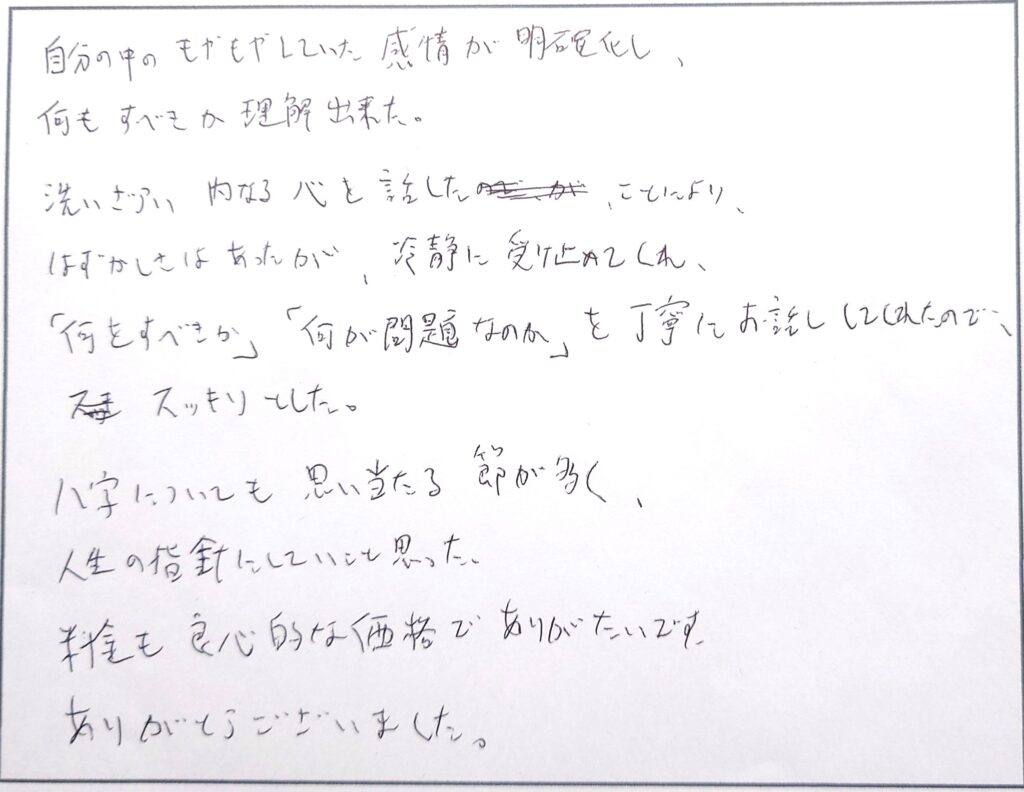 自分の中のモヤモヤしていた感情が明確化し、
何もすべきか理解出来た。
洗いざらい内なる心を話した、ことにより、
はずかしさはあったが、冷静に受け止めてくれ、
「何をすべきか」「何が問題なのか」を丁寧にお話ししてくれたので、
スッキリとした。
八字についても思い当たる節が多く、
人生の指針にしていこと思った。
料金も良心的な価格でありがたいです
ありがとうございました。